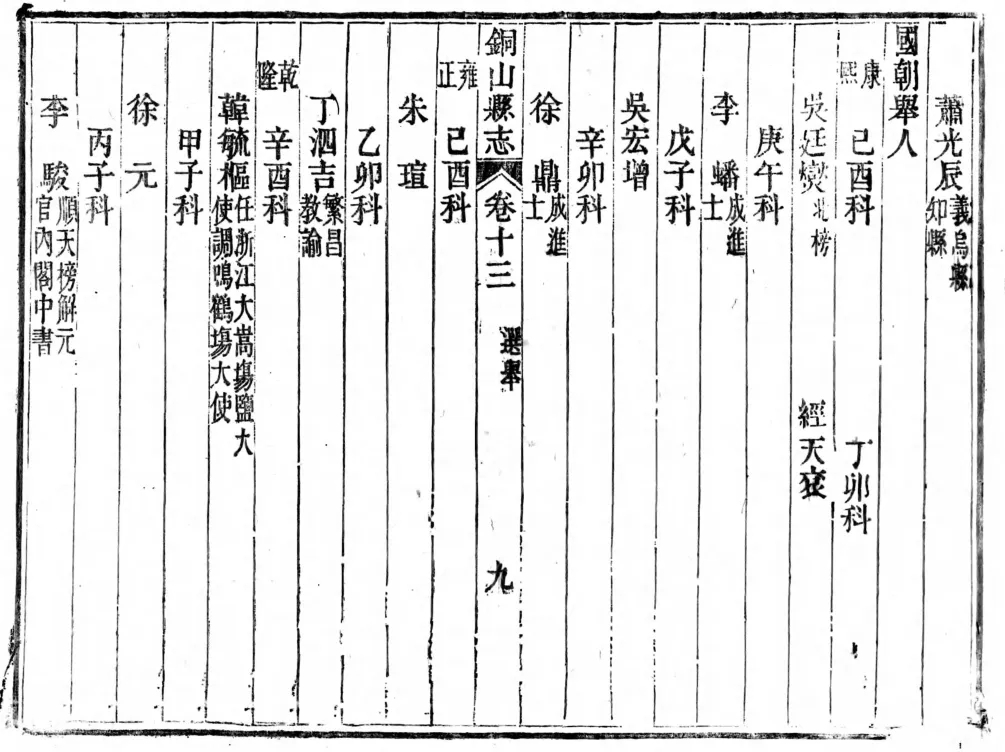 蕭光辰義烏縣知縣
國朝舉人
康熙己酉科 丁卯科
吳廷爕北榜 經天
庚午科
李蟠成進士
戊子科
吳宏增
辛卯科
徐鼎成進士
銅山縣志 卷十三 選舉 九
雍正己酉科
朱瑄
乙卯科
丁泗吉繁昌教諭
乾隆辛酉科
韓毓樞任浙江大嵩塲鹽大使調鳴鶴塲大使
甲子科
徐元
丙子科
李駿順天榜解元官內閣中書